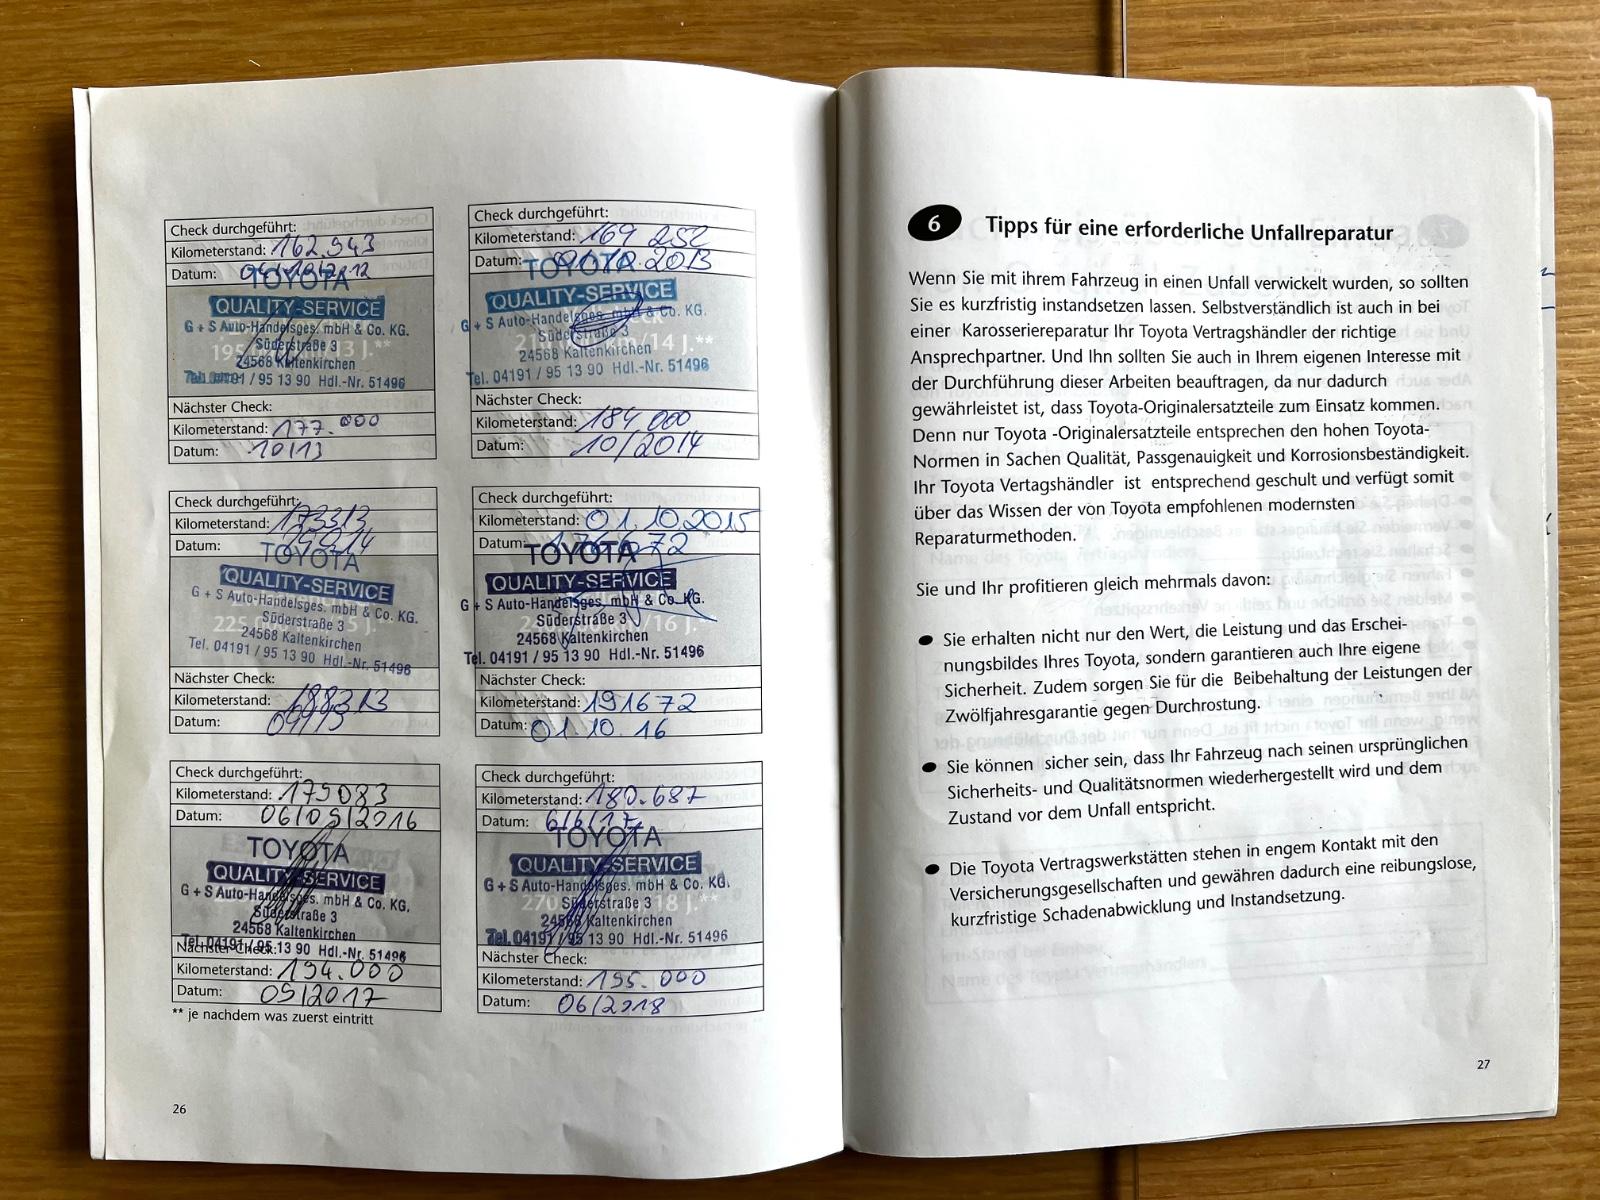 Check durchgeführt:
Kilometerstand: 162.943
Datum:
TOYOTA
QUALITY-SERVICE
G + S Auto-Handelsges. mbH & Co. KG.
Süderstraße 3
24568 Kaltenkirchen
Tel. 04191 / 95 13 90 Hdl.-Nr. 51496
Nächster Check:
Kilometerstand: 177.000
Datum: 10/13
Check durchgeführt:
Kilometerstand: 169 252
Datum: 2013
TOYOTA
QUALITY-SERVICE
G + S Auto-Handelsges. mbH & Co. KG.
Süderstraße 3
24568 Kaltenkirchen
Tel. 04191 / 95 13 90 Hdl.-Nr. 51496
Nächster Check:
Kilometerstand: 184 000
Datum: 10/2014
Check durchgeführt:
Kilometerstand: 173313
Datum:
TOYOTA
QUALITY-SERVICE
G + S Auto-Handelsges. mbH & Co. KG.
Süderstraße 3
24568 Kaltenkirchen
Tel. 04191 / 95 13 90 Hdl.-Nr. 51496
Nächster Check:
Kilometerstand: 188313
Datum:
Check durchgeführt:
Kilometerstand: 01.10.2015
Datum: 176672
TOYOTA
QUALITY-SERVICE
G + S Auto-Handelsges. mbH & Co. KG.
Süderstraße 3
24568 Kaltenkirchen
Tel. 04191 / 95 13 90 Hdl.-Nr. 51496
Nächster Check:
Kilometerstand: 191672
Datum: 01.10.16
Check durchgeführt:
Kilometerstand: 179083
Datum: 06/09/2016
TOYOTA
QUALITY-SERVICE
G + S Auto-Handelsges. mbH & Co. KG.
Süderstraße 3
24568 Kaltenkirchen
Tel. 04191 / 95 13 90 Hdl.-Nr. 51496
Nächster Check:
Kilometerstand: 194.000
Datum: 09/2017
Check durchgeführt:
Kilometerstand: 180.687
Datum: 6/6/17
TOYOTA
QUALITY-SERVICE
G + S Auto-Handelsges. mbH & Co. KG.
Süderstraße 3
24568 Kaltenkirchen
Tel. 04191 / 95 13 90 Hdl.-Nr. 51496
Nächster Check:
Kilometerstand: 195.000
Datum: 06/2018
** je nachdem was zuerst eintritt
26
6 Tipps für eine erforderliche Unfallreparatur
Wenn Sie mit ihrem Fahrzeug in einen Unfall verwickelt wurden, so sollten
Sie es kurzfristig instandsetzen lassen. Selbstverständlich ist auch in bei
einer Karosseriereparatur Ihr Toyota Vertragshändler der richtige
Ansprechpartner. Und Ihn sollten Sie auch in Ihrem eigenen Interesse mit
der Durchführung dieser Arbeiten beauftragen, da nur dadurch
gewährleistet ist, dass Toyota-Originalersatzteile zum Einsatz kommen.
Denn nur Toyota -Originalersatzteile entsprechen den hohen Toyota-
Normen in Sachen Qualität, Passgenauigkeit und Korrosionsbeständigkeit.
Ihr Toyota Vertagshändler ist entsprechend geschult und verfügt somit
über das Wissen der von Toyota empfohlenen modernsten
Reparaturmethoden.
Sie und Ihr profitieren gleich mehrmals davon:
● Sie erhalten nicht nur den Wert, die Leistung und das Erschei-
nungsbildes Ihres Toyota, sondern garantieren auch Ihre eigene
Sicherheit. Zudem sorgen Sie für die Beibehaltung der Leistungen der
Zwölfjahresgarantie gegen Durchrostung.
● Sie können sicher sein, dass Ihr Fahrzeug nach seinen ursprünglichen
Sicherheits- und Qualitätsnormen wiederhergestellt wird und dem
Zustand vor dem Unfall entspricht.
● Die Toyota Vertragswerkstätten stehen in engem Kontakt mit den
Versicherungsgesellschaften und gewähren dadurch eine reibungslose,
kurzfristige Schadenabwicklung und Instandsetzung.
27